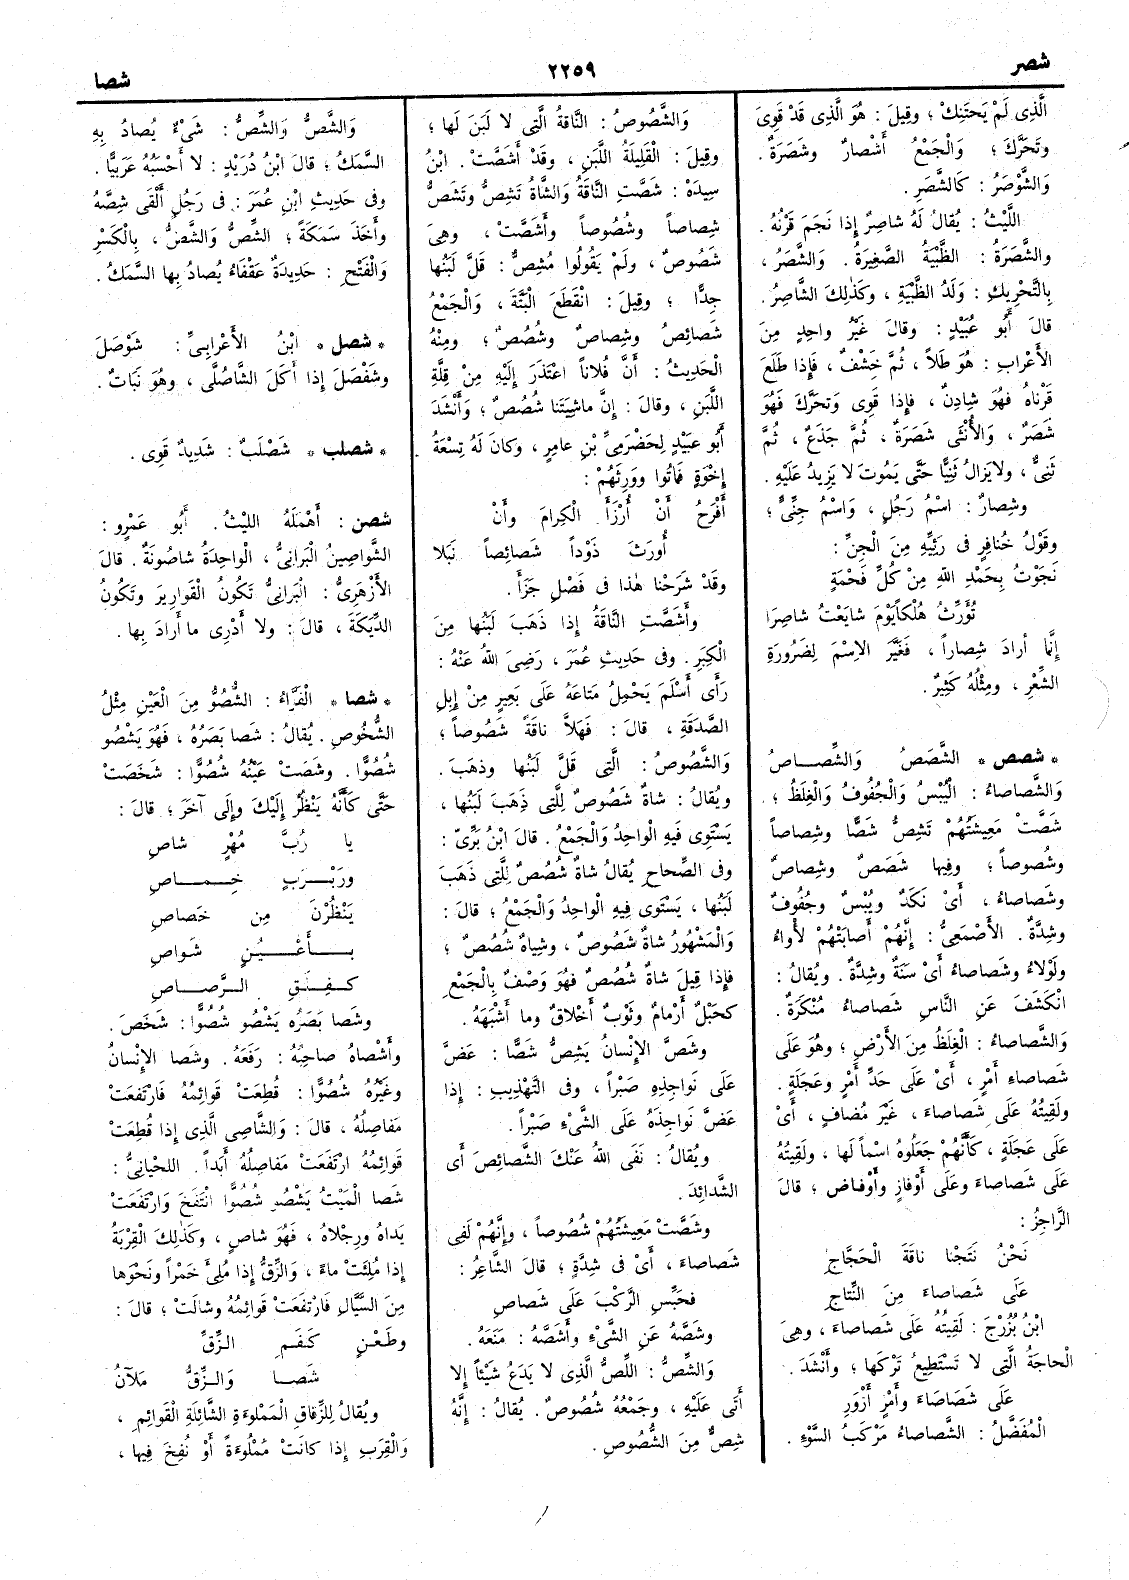 شصر
٢٢٥٩
شصا
الَّذِى لَمْ يَحْتَنِكْ ؛ وقِيلَ : هُوَ الَّذِى قَدْ قَوِىَ
وتَحَرَّكَ ؛ وَالْجَمْعُ أَشْصارٌ وشَصَرَةٌ .
وَالشَّوْصَرُ : كَالشَّصَرِ .
اللَّيْثُ : يُقالُ لَهُ شاصِرٌ إِذا نَجَمَ قَرْنُهُ .
والشَّصَرَةُ : الظَّبْيَةُ الصَّغِيرَةُ . وَالشَّصَرُ ،
بِالتَّحْرِيكِ : وَلَدُ الظَّبْيَةِ ، وكَذلِكَ الشَّاصِرُ .
قالَ أَبُو عُبَيْدٍ : وقالَ غَيْرُ واحِدٍ مِنَ
الأَعْرابِ : هُوَ طَلاً ، ثُمَّ خَشْفٌ ، فَإِذا طَلَعَ
قَرْناهُ فَهُوَ شادِنٌ ، فإِذا قَوِىَ وَتَحَرَّكَ فَهُوَ
شَصَرٌ ، وَالأُنْثَى شَصَرَةٌ ، ثُمَّ جَذَعٌ ، ثُمَّ
ثَنِىٌّ ، ولايَزالُ ثَنِيًّا حَتَّى يَمُوتَ لا يَزِيدُ عَلَيْهِ .
وشِصارٌ : اسْمُ رَجُلٍ ، وَاسْمُ جِنِّىٍّ ؛
وقَوْلُ خُنافِرٍ فى رَئِيِّهِ مِنَ الْجِنِّ :
نَجَوْتُ بِحَمْدِ اللهِ مِنْ كُلِّ فَحْمَةٍ
تُؤَرِّثُ هُلْكاًيَوْمَ شايَعْتُ شاصِرَا
إِنَّما أرادَ شِصاراً ، فَغَيَّرَ الاِسْمَ لِضَرُورَةِ
الشِّعْرِ ، ومِثْلُهُ كَثِيرٌ .
* شصص * الشَّصَصُ وَالشِّصــاصُ
وَالشَّصاصاءُ : الْيُبْسُ وَالْجُفُوفُ وَالْغِلَظُ ؛
شَصَّتْ مَعِيشَتُهُمْ تَشِصُّ شَصًّا وشِصاصاً
وشُصُوصاً ؛ وفِيها شَصَصٌ وشِصاصٌ
وشَصاصاءُ ، أَىْ نَكَدٌ ويُبْسٌ وجُفُوفٌ
وشِدَّةٌ . الأَصْمَعِىُّ : إِنَّهُمْ أَصابَتْهُمْ لأْواءُ
ولَوْلاءُ وشَصاصاءُ أَىْ سَنَةٌ وشِدَّةٌ . ويُقالُ :
انْكَشَفَ عَنِ النَّاسِ شَصاصاءُ مُنْكَرَةٌ .
وَالشَّصاصاءُ : الْغِلَظُ مِنَ الأَرْضِ ؛ وهُوَ عَلَى
شَصاصاءِ أَمْرٍ ، أَىْ عَلَى حَدِّ أَمْرٍ وعَجَلَةٍ .
ولَقِيتُهُ عَلَى شَصاصاءَ ، غَيْرَ مُضافٍ ، أَىْ
عَلَى عَجَلَةٍ ، كَأَنَّهُمْ جَعَلُوهُ اسْماً لَها ، ولَقِيتُهُ
عَلَى شَصاصاءَ وعَلَى أَوْفازٍ وأَوْفـاض ؛ قالَ
الرَّاجِزُ :
نَحْنُ نَتَجْنا ناقَةَ الْحَجَّاجِ
عَلَى شَصاصاءَ مِنَ النِّتاجِ
ابْنُ بُزُرْجَ : لَقِيتُهُ عَلَى شَصاصاءَ ، وهِىَ
الْحاجَةُ الَّتِى لا تَسْتَطِيعُ تَرْكَها ؛ وأَنْشَدَ .
عَلَى شَصَاصَاءَ وَأَمْرٍ أَزْوَرِ
الْمُفَضَّلُ : الشَّصاصاءُ مَرْكَبُ السَّوْءِ .
وَالشَّصُوصُ : النَّاقَةُ الَّتِى لا لَبَنَ لَها ؛
وقِيلَ : الْقَلِيلَةُ اللَّبَنِ ، وقَدْ أَشَصَّتْ . ابْنُ
سِيدَهْ : شَصَّتِ النَّاقَةُ وَالشَّاةُ تَشِصُّ وتَشُصُّ
شِصاصاً وشُصُوصاً وأَشَصَّتْ ، وهِىَ
شَصُوصٌ ، ولَمْ يَقُولُوا مُشِصٌّ : قَلَّ لَبَنُها
جِدًّا ؛ وقِيلَ : انْقَطَعَ الْبَتَّةَ ، وَالْجَمْعُ
شَصائِصُ وشِصاصٌ وشُصُصٌ ؛ ومِنْهُ
الْحَدِيثُ : أَنَّ فُلاناً اعْتَذَرَ إِلَيْهِ مِنْ قِلَّةِ
اللَّبَنِ ، وقالَ : إِنَّ ماشِيَتَنا شُصُصٌ ؛ وأَنْشَدَ
أَبُو عبَيْدٍ لِحَضْرَمِىِّ بْنِ عامِرٍ ، وكانَ لَهُ تِسْعَةُ
إِخْوَةٍ فَماتُوا ووَرِثَهُمْ :
أَفْرَحُ أَنْ أُرْزَأَ الْكِرامَ وأَنْ
أُورَثَ ذَوْداً شَصائِصاً نَبَلا
وقَدْ شَرَحْنا هٰذا فى فَصْلِ جَزَأَ .
وأَشَصَّتِ النَّاقَةُ إِذا ذَهَبَ لَبَنُها مِنَ
الْكِبَرِ . وفى حَدِيثِ عُمَرَ ، رَضِىَ اللهُ عَنْهُ :
رَأَى أَسْلَمَ يَحْمِلُ مَتاعَهُ عَلَى بَعِيرٍ مِنْ إِبِلِ
الصَّدَقَةِ ، قالَ : فَهَلاَّ ناقَةً شَصُوصاً ؛
وَالشَّصُوصُ : الَّتِى قَلَّ لَبَنُها وذهَبَ .
ويُقالُ : شاةٌ شَصُوصٌ لِلَّتِى ذَهَبَ لَبَنُها ،
يَسْتَوِى فِيهِ الْواحِدُ وَالْجَمْعُ . قالَ ابْنُ بَرِّىّ :
وفى الصِّحاحِ يُقالُ شاةٌ شُصُصٌ لِلَّتِى ذَهَبَ
لَبَنُها ، يَسْتَوِى فِيهِ الْواحِدُ وَالْجَمْعُ ؛ قالَ :
وَالْمَشْهُورُ شاةٌ شَصُوصٌ ، وشِياهٌ شُصُصٌ ؛
فَإِذا قِيلَ شاةٌ شُصُصٌ فَهُوَ وَصْفٌ بِالْجَمْعِ
كحَبْلٌ أَرْمامٌ وثَوْبٌ أَخْلاقٌ وما أَشْبَهَهُ .
وشَصَّ الإِنْسانُ يَشِصُّ شَصًّا : عَضَّ
عَلَى نَواجِذِهِ صَبْراً ، وفى التَّهْذِيبِ : إِذا
عَضَّ نَواجِذَهُ عَلَى الشَّىْءِ صَبْراً .
ويُقالُ : نَفَى اللهُ عَنْكَ الشَّصائِصَ أَى
الشَّدائِدَ .
وشَصَّتْ مَعِيشَتُهُمْ شُصُوصاً ، وإِنَّهُمْ لَفِى
شَصاصاءَ ، أَىْ فى شِدَّةٍ ؛ قالَ الشَّاعِرُ :
فَحَبِّسِ الرَّكْبَ عَلَى شَصاصِ
وشَصَّهُ عَنِ الشَّىْءِ وأَشَصَّهُ : مَنَعَهُ .
وَالشِّصُّ : اللِّصُّ الَّذِى لا يَدَعُ شَيْئاً إِلا
أَتَى عَلَيْهِ ، وجَمْعُهُ شُصُوصٌ . يُقالُ : إِنَّهُ
شِصٌّ مِنَ الشُّصُوصِ .
وَالشَّصُّ وَالشِّصُّ : شَىْءٌ يُصادُ بِهِ
السَّمَكُ ؛ قالَ ابْنُ دُرَيْدٍ : لا أَحْسَبُهُ عَرَبِيًّا .
وفى حَدِيثِ ابْنِ عُمَرَ : فى رَجُلٍ أَلْقَى شِصَّهُ
وأَخَذَ سَمَكَةً ؛ الشِّصُّ وَالشَّصُّ ، بِالْكَسْرِ
وَالْفَتْحِ : حَدِيدَةٌ عَقْفاءُ يُصادُ بِها السَّمَكُ .
* شصل * ابْنُ الأَعْرابِىِّ : شَوْصَلَ
وشَفْصَلَ إِذا أَكَلَ الشَّاصُلَّى ، وهُوَ نَباتٌ .
* شصلب * شَصْلَبٌ : شَدِيدٌ قَوِى .
شصن : أَهْمَلَهُ اللَّيْثُ . أَبُو عَمْرٍو :
الشَّواصِينُ الْبَرانِىُّ ، الْواحِدَةُ شاصُونَةٌ . قالَ
الأَزْهَرِىُّ : الْبَرانِىُّ تَكُونُ الْقَوارِيرَ وتَكُونُ
الدِّيَكَةَ ، قالَ : ولا أَدْرِى ما أَرادَ بِها .
* شصا * الْفَرَّاءُ : الشُّصُوُّ مِنَ الْعَيْنِ مِثْلُ
الشُّخُوصِ . يُقالُ : شَصا بَصَرُهُ ، فَهُوَ يَشْصُو
شُصُوًّا . وشَصَتْ عَيْنُهُ شُصُوًّا : شَخَصَتْ
حَتَّى كَأَنَّهُ يَنْظُرُ إِلَيْكَ وإِلَى آخَرَ ؛ قالَ :
يا رُبَّ مُهْرٍ شاصِ
ورَبْــرَبٍ خِــمــاصِ
يَنْظُرْنَ مِن خَصاصِ
بــأَعْــيُــنٍ شَواصِ
كَــفِــلَقِ الــرَّصــاصِ
وشَصا بَصَرُه يَشْصُو شُصُوًّا : شَخَصَ .
وأَشْصاهُ صاحِبُهُ : رَفَعَهُ . وشَصا الإِنْسانُ
وغَيْرُهُ شُصُوًّا : قُطِعَتْ قَوائِمُهُ فَارْتَفَعَتْ
مَفاصِلُهُ ، قالَ : وَالشَّاصِى الَّذِى إِذا قُطِعَتْ
قَوائِمُهُ ارْتَفَعَتْ مَفاصِلُهُ أَبَداً . اللحْيانِىُّ :
شَصا الْمَيْتُ يَشْصُو شُصُوًّا انْتَفَخَ وَارْتَفَعَتْ
يَداهُ ورِجْلاهُ ، فَهُوَ شاصٍ ، وكَذٰلِكَ الْقِرْبَةُ
إِذا مُلِئَتْ ماءً ، وَالزِّقُّ إِذا مُلِئَ خَمْراً ونَحْوَها
مِنَ السَّيَّالِ فَارْتَفَعَتْ قَوائِمُهُ وشالَتْ ؛ قالَ :
وطَعْـنٍ كَفَـمِ الزِّقِّ
شَصـا وَالـزِّقُّ مَلآنُ
ويُقالُ لِلزِّقاقِ الْمَمْلوءَةِ الشَّائِلَةِ الْقَوائِمِ ،
وَالْقِرَبِ إِذا كانَتْ مَمْلُوءَةً أَوْ نُفِخَ فِيها ،